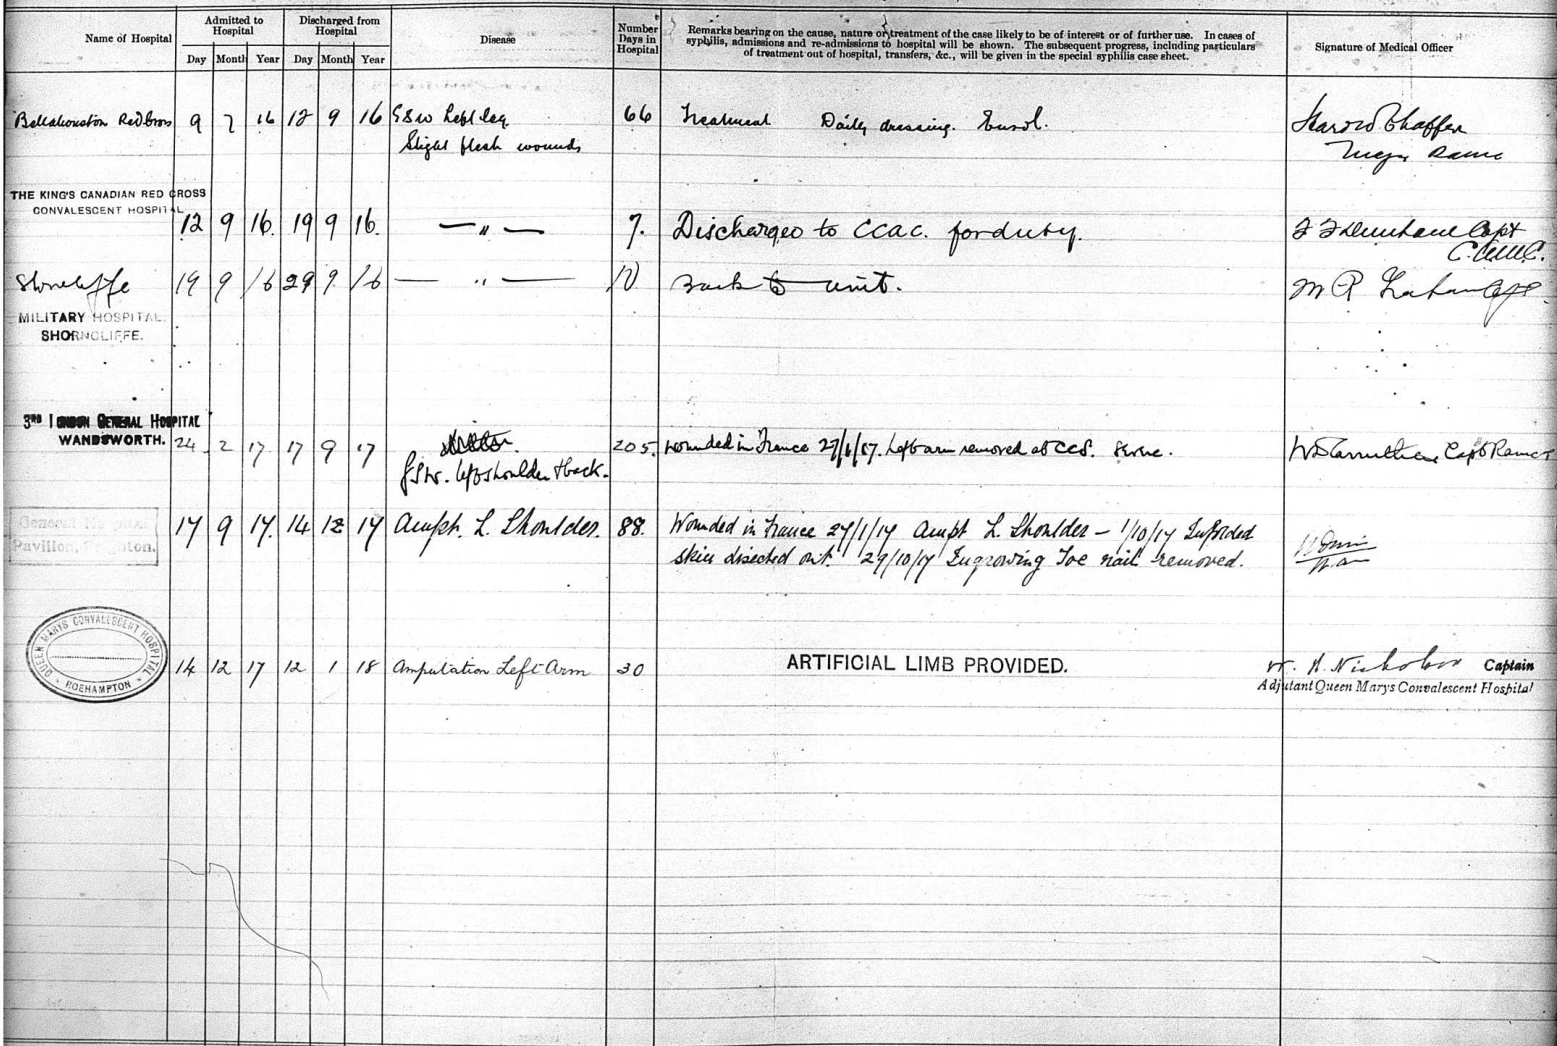 Name of Hospital
Admitted to Hospital
Discharged from Hospital
Disease
Number Days in Hospital
Remarks bearing on the cause, nature or treatment of the case likely to be of interest or of further use. In cases of
syphilis, admissions and re-admissions to hospital will be shown. The subsequent progress, including particulars
of treatment out of hospital, transfers, &c., will be given in the special syphilis case sheet.
Signature of Medical Officer
Day Month Year Day Month Year
Bellahouston Red Cross 9 7 16 12 9 16 GSW Left leg 66 Treatment Daily dressing. Eusol. Harold Chaffer
Slight flesh wounds Major RAMC
THE KING'S CANADIAN RED CROSS
CONVALESCENT HOSPITAL
12 9 16. 19 9 16. — " — 7. Discharged to CCAC. for duty. Capt
C.A.M.C.
Shorncliffe 19 9 16 29 9 16 — " — 10 Back to unit. M R Graham Capt.
MILITARY HOSPITAL.
SHORNCLIFFE.
3RD LONDON GENERAL HOSPITAL
WANDSWORTH. 24 2 17. 17 9 17 205. wounded in France 27/1/17. Left arm removed at CCS. Severe. Capt RAMCT
GSW. left shoulder & back.
General Hospital
Pavilion, Brighton.
17 9 17. 14 12 17 Ampt. L. Shoulder. 88. Wounded in France 27/1/17 Ampt L. Shoulder – 1/10/17 Infolded
skin disected out. 29/10/17 Ingrowing Toe nail removed.
QUEEN MARYS CONVALESCENT HOSPITAL
ROEHAMPTON
14 12 17 12 1 18 Amputation Left Arm 30 ARTIFICIAL LIMB PROVIDED. W. A. Nicholson Captain
Adjutant Queen Marys Convalescent Hospital